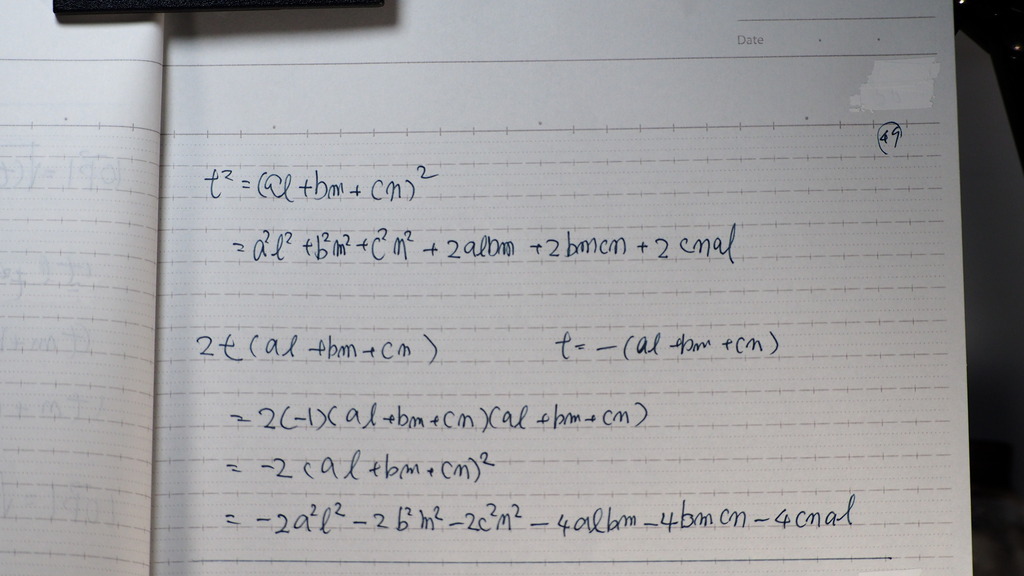 Date
49
t² = (al + bm + cn)²
= a²l² + b²m² + c²n² + 2albm + 2bmcn + 2cnal
2t(al + bm + cn) t = -(al + bm + cn)
= 2(-1)(al + bm + cn)(al + bm + cn)
= -2(al + bm + cn)²
= -2a²l² - 2b²m² - 2c²n² - 4albm - 4bmcn - 4cnal